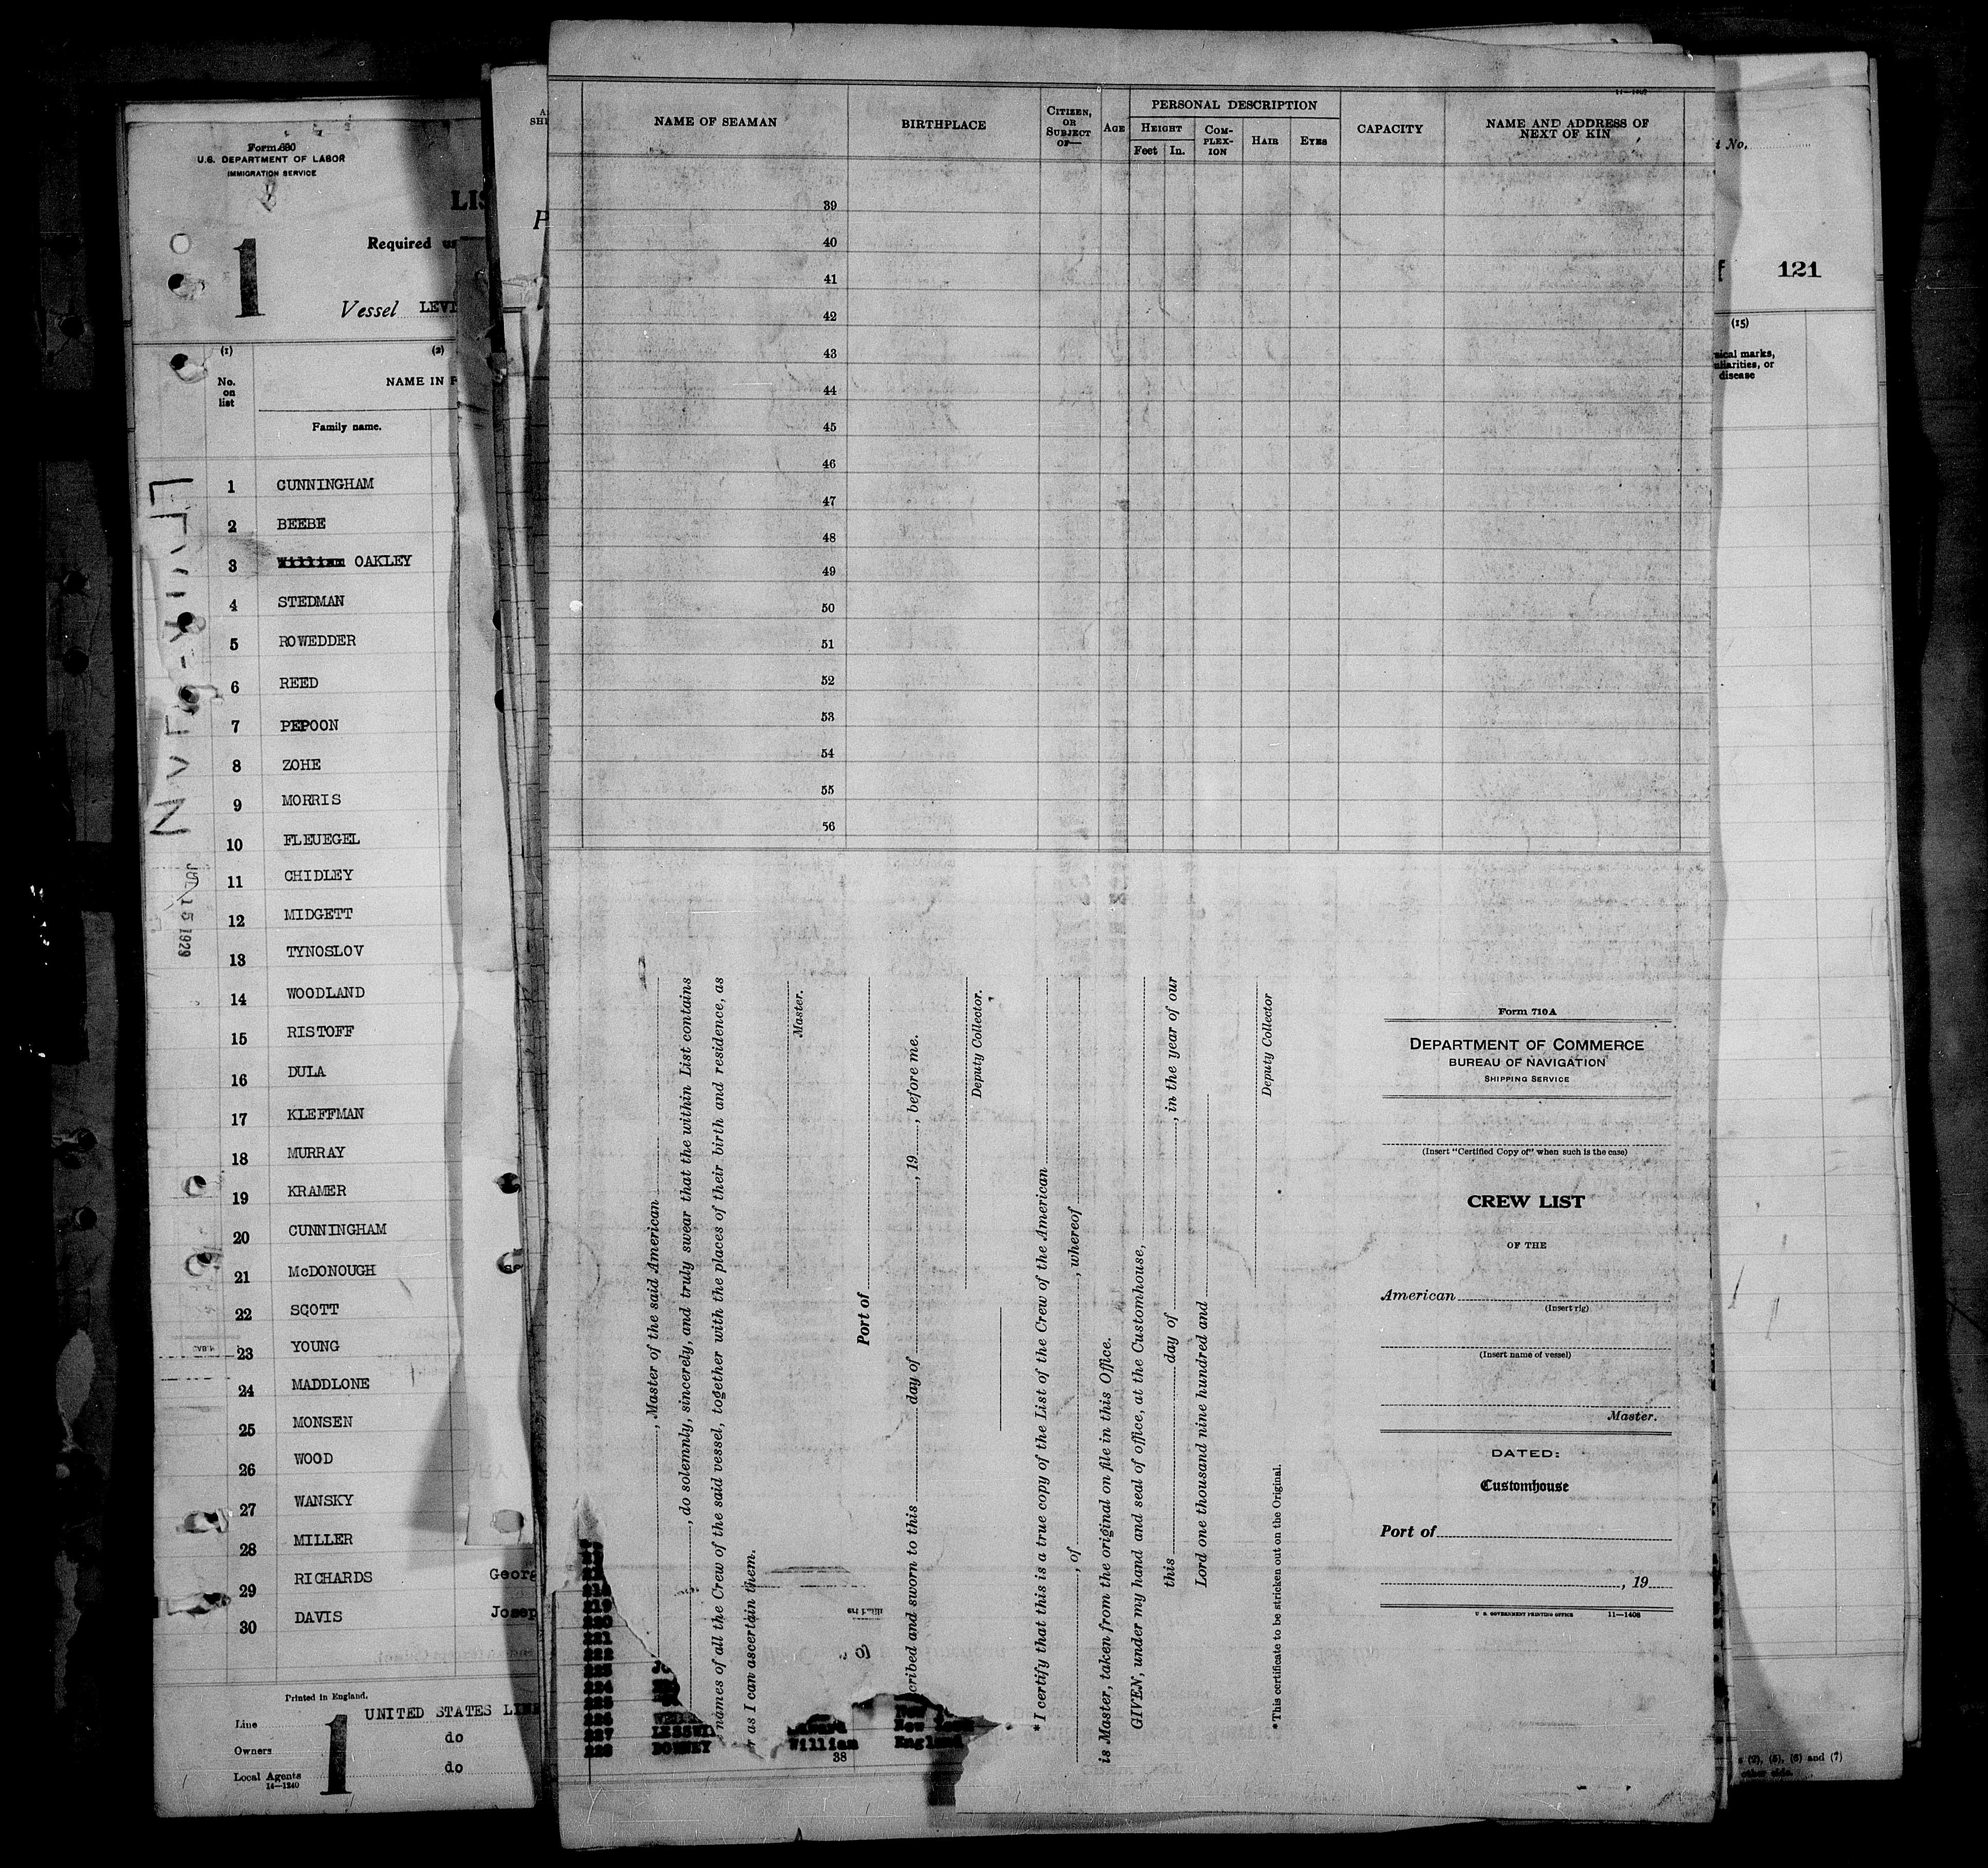 Form 680
U.S. DEPARTMENT OF LABOR
IMMIGRATION SERVICE
LIS
1
Required
Vessel LEVI
(1) (2)
No. on list
NAME IN F
Family name.
1 CUNNINGHAM
2 BEEBE
3 William OAKLEY
4 STEDMAN
5 ROWEDDER
6 REED
7 PEPOON
8 ZOHE
9 MORRIS
10 FLEUEGEL
11 CHIDLEY
12 MIDGETT
13 TYNOSLOV
14 WOODLAND
15 RISTOFF
16 DULA
17 KLEFFMAN
18 MURRAY
19 KRAMER
20 CUNNINGHAM
21 McDONOUGH
22 SCOTT
23 YOUNG
24 MADDLONE
25 MONSEN
26 WOOD
27 WANSKY
28 MILLER
29 RICHARDS Georg
30 DAVIS Josep
JUL 15 1929
Printed in England.
Line UNITED STATES LINE
Owners do
Local Agents do
14—1240
1
NAME OF SEAMAN
BIRTHPLACE
CITIZEN, OR SUBJECT OF—
AGE
PERSONAL DESCRIPTION
HEIGHT
Feet In.
COMPLEXION
HAIR
EYES
CAPACITY
NAME AND ADDRESS OF NEXT OF KIN
39
40
41
42
43
44
45
46
47
48
49
50
51
52
53
54
55
56
, Master of the said American
, do solemnly, sincerely, and truly swear that the within List contains
names of all the Crew of the said vessel, together with the places of their birth and residence, as
r as I can ascertain them.
Master.
Port of
cribed and sworn to this day of , 19 , before me.
Deputy Collector.
*I certify that this is a true copy of the List of the Crew of the American
, of , whereof
is Master, taken from the original on file in this Office.
GIVEN, under my hand and seal of office, at the Customhouse,
this day of , in the year of our
Lord one thousand nine hundred and
Deputy Collector
*This certificate to be stricken out on the Original.
Form 710A
DEPARTMENT OF COMMERCE
BUREAU OF NAVIGATION
SHIPPING SERVICE
(Insert "Certified Copy of" when such is the case)
CREW LIST
OF THE
American
(Insert rig)
(Insert name of vessel)
Master.
DATED:
Customhouse
Port of
, 19
U. S. GOVERNMENT PRINTING OFFICE 11—1408
218
219
220
221
222
223
224
225
226
227 New York
228 DOWNEY William England
38
t No.
f 121
(15)
sical marks,
uliarities, or
disease
s (2), (5), (6) and (7)
other side.